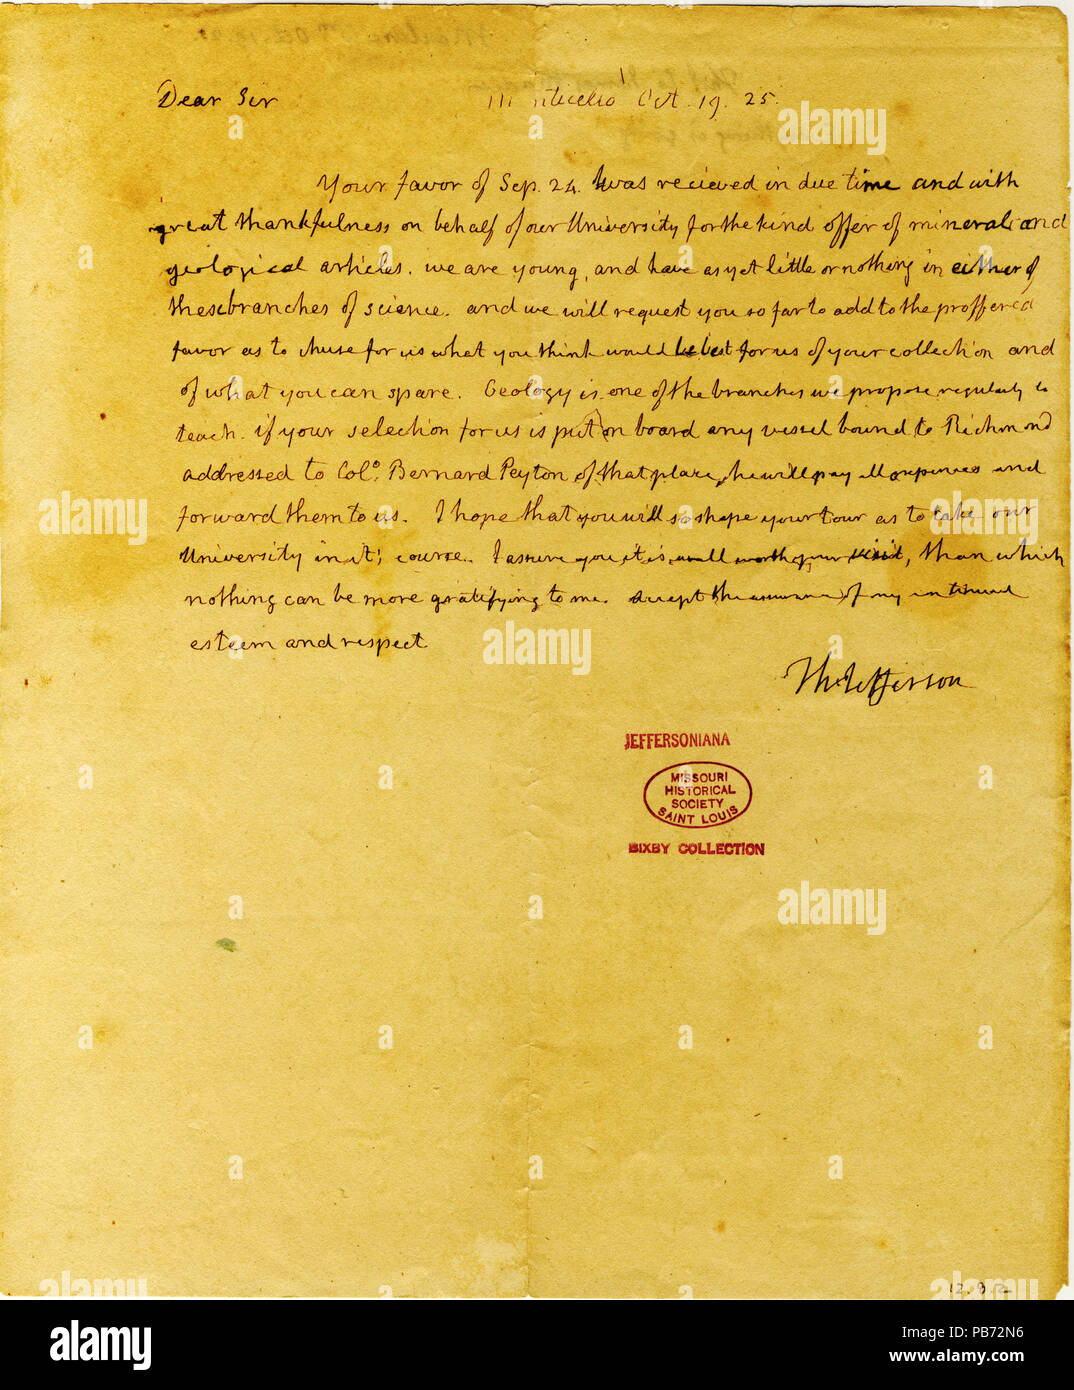 Dear Sir Monticello Oct. 19. 25.
Your favor of Sep. 24. was recieved in due time and with
great thankfulness on behalf of our University for the kind offer of mineral and
geological articles. we are young, and have as yet little or nothing in either of
these branches of science. and we will request you so far to add to the proffered
favor as to chuse for us what you think would be best for us of your collection and
of what you can spare. Geology is one of the branches we propose regularly to
teach. if your selection for us is put on board any vessel bound to Richmond
addressed to Colo. Bernard Peyton of that place, he will pay all expences and
forward them to us. I hope that you will so shape your tour as to take our
University in it's course. I assure you it is well worth your visit, than which
nothing can be more gratifying to me. Accept the assurance of my continued
esteem and respect
Th: Jefferson
JEFFERSONIANA
MISSOURI
HISTORICAL
SOCIETY
SAINT LOUIS
BIXBY COLLECTION
alamy
a
alamy
Image ID: PB72N6
www.alamy.com